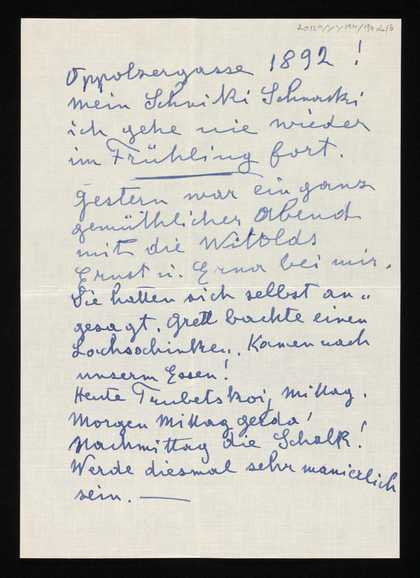 Oppolzergasse 1892!
mein Schniki Schnacki
ich gehe nie wieder
im Frühling fort.
gestern war ein ganz
gemüthlicher Abend
mit die Witolds
Ernst u. Erna bei mir.
Die hatten sich selbst an"
gesagt. Gretl backte einen
Lachsschinken. Kamen nach
unserm Essen!
Heute Trubetskoi, Mittag.
Morgen Mittag gerda!
Nachmittag die Schalk!
Werde diesmal sehr manierlich
sein. —